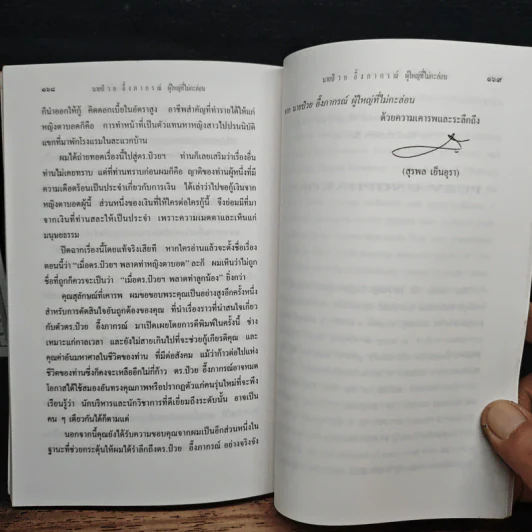 ๑๖๘
นายป๋วย อึ๊งภากรณ์ ผู้ใหญ่ที่ไม่กะล่อน
ก็นำออกให้กู้ คิดดอกเบี้ยในอัตราสูง อาชีพสำคัญที่ทำรายได้ให้แก่
หญิงตาบอดก็คือ การทำหน้าที่เป็นตัวแทนหาหญิงสาวไปปรนนิบัติ
แขกที่มาพักโรงแรมในละแวกบ้าน
ผมได้ถ่ายทอดเรื่องนี้ไปสู่ดร.ป๋วยฯ ท่านก็เลยเสริมว่าเรื่องอื่น
ท่านไม่เคยทราบ แต่ที่ท่านทราบก่อนผมก็คือ ญาติของท่านผู้หนึ่งที่มี
ความเดือดร้อนเป็นประจำเกี่ยวกับการเงิน ได้เล่าว่าไปขอกู้เงินจาก
หญิงตาบอดผู้นี้ ส่วนหนึ่งของเงินที่ให้ใครต่อใครกู้นี้ จึงย่อมมีที่มา
จากเงินที่ท่านสละให้เป็นประจำ เพราะความเมตตาและเห็นแก่
มนุษยธรรม
ปิดฉากเรื่องนี้โดยแท้จริงเสียที หากใครอ่านแล้วจะตั้งชื่อเรื่อง
ตอนนี้ว่า “เมื่อดร.ป๋วยฯ พลาดท่าหญิงตาบอด” ละก็ ผมเห็นว่าไม่ถูก
ชื่อที่ถูกก็ควรจะเป็นว่า “เมื่อดร.ป๋วยฯ พลาดท่าลูกน้อง” ยิ่งกว่า
คุณสุลักษณ์ที่เคารพ ผมขอขอบพระคุณเป็นอย่างสูงอีกครั้งหนึ่ง
สำหรับการตัดสินใจอันถูกต้องของคุณ ที่นำเรื่องราวที่น่าสนใจเกี่ยว
กับตัวดร.ป๋วย อึ๊งภากรณ์ มาเปิดเผยโดยการตีพิมพ์ในครั้งนี้ ช่าง
เหมาะแก่กาลเวลา และยังไม่สายเกินไปที่จะช่วยกู้เกียรติคุณ และ
คุณค่าอันมหาศาลในชีวิตของท่าน ที่มีต่อสังคม แม้ว่าก้าวต่อไปแห่ง
ชีวิตของท่านซึ่งก็คงจะเหลืออีกไม่กี่ก้าว ดร.ป๋วย อึ๊งภากรณ์อาจหมด
โอกาสได้ใช้สมองอันทรงคุณภาพหรือปรากฏตัวแก่คนรุ่นใหม่ที่จะพึง
เรียนรู้ว่า นักบริหารและนักวิชาการที่ดีเยี่ยมถึงระดับนั้น อาจเป็น
คน ๆ เดียวกันได้ก็ตามแต่
นอกจากนี้คุณยังได้รับความขอบคุณจากผมเป็นอีกส่วนหนึ่งใน
ฐานะที่ช่วยกระตุ้นให้ผมได้รำลึกถึงดร.ป๋วย อึ๊งภากรณ์ อย่างจริงจัง
นายป๋วย อึ๊งภากรณ์ ผู้ใหญ่ที่ไม่กะล่อน
๑๖๙
นายป๋วย อึ๊งภากรณ์ ผู้ใหญ่ที่ไม่กะล่อน
ด้วยความเคารพและระลึกถึง
(สุรพล เย็นอุรา)